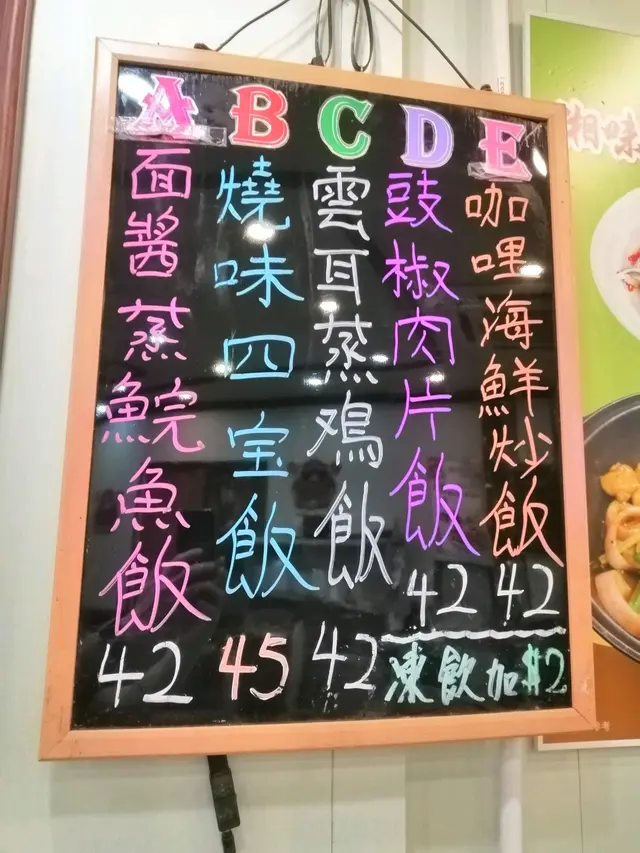 A
面醬蒸鯇魚飯
42
B
燒味四宝飯
45
C
雲耳蒸鳮飯
42
D
豉椒肉片飯
42
E
咖哩海鮮炒飯
42
凍飲加$2
湘味